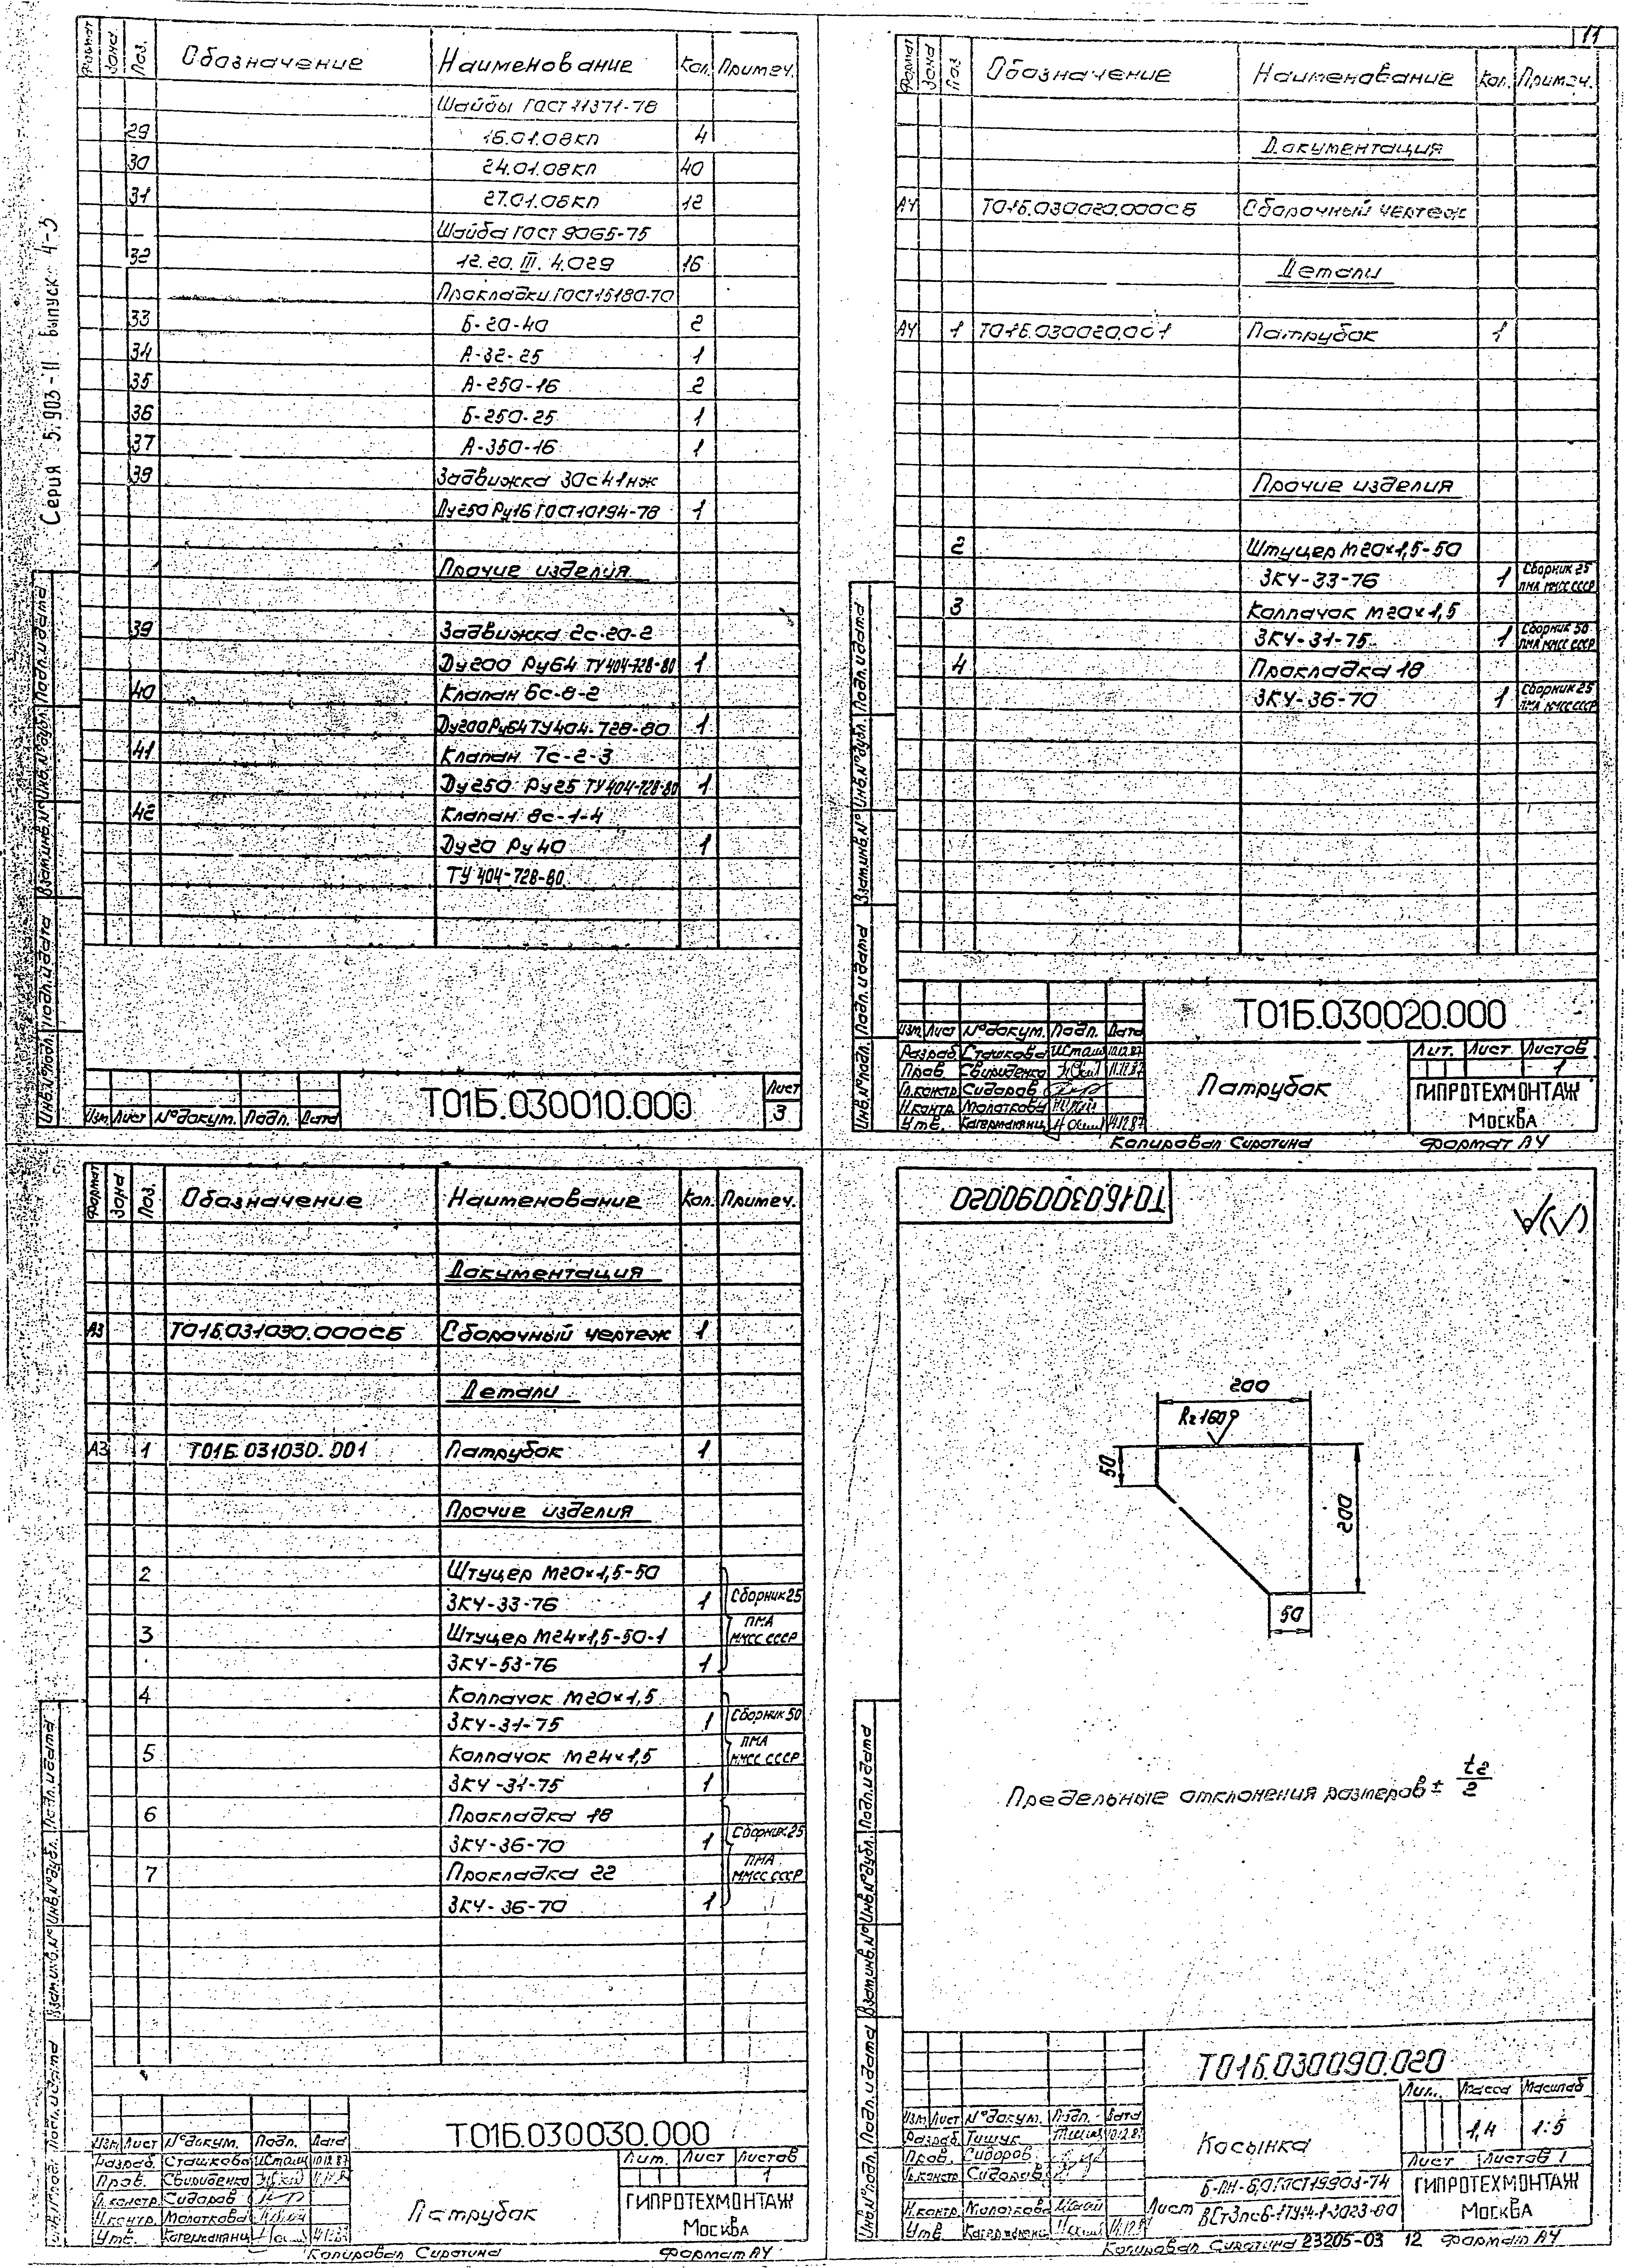 Серия 5.903-11 выпуск 4-3
Формат Зона Поз. Обозначение Наименование Кол. Примеч.
Шайбы ГОСТ 11371-78
29 16.01.08кп 4
30 24.01.08кп 40
31 27.01.08кп 12
Шайба ГОСТ 9065-75
32 12.20.III.4.029 16
Прокладки ГОСТ 15180-70
33 Б-20-40 2
34 А-32-25 1
35 А-250-16 2
36 Б-250-25 1
37 А-350-16 1
39 Задвижка 30с41нж
Ду250 Ру16 ГОСТ 10194-78 1
Прочие изделия
39 Задвижка 2с-20-2
Ду200 Ру64 ТУ 404-728-80 1
40 Клапан 6с-8-2
Ду200 Ру64 ТУ 404-728-80 1
41 Клапан 7с-2-3
Ду250 Ру25 ТУ 404-728-80 1
42 Клапан 8с-1-4
Ду20 Ру40 1
ТУ 404-728-80
Инв.№подл. Подп. и дата Взам.инв.№ Инв.№дубл. Подп. и дата
Изм. Лист №докум. Подп. Дата
Т01Б.030010.000
Лист
3
11
Формат Зона Поз. Обозначение Наименование Кол. Примеч.
Документация
А4 Т01Б.030020.000СБ Сборочный чертеж
Детали
А4 1 Т01Б.030020.001 Патрубок 1
Прочие изделия
2 Штуцер М20×1,5-50
ЗК4-33-76 1 Сборник 25 ПМА ММСС СССР
3 Колпачок М20×1,5
ЗК4-31-75 1 Сборник 50 ПМА ММСС СССР
4 Прокладка 18
ЗК4-36-70 1 Сборник 25 ПМА ММСС СССР
Инв.№подл. Подп. и дата Взам.инв.№ Инв.№дубл. Подп. и дата
Т01Б.030020.000
Изм. Лист №докум. Подп. Дата
Разраб. Сташкова 10.12.87
Пров. Свириденко
Гл.констр. Сидоров
Н.контр. Молоткова
Утв.
Патрубок
Лит. Лист Листов
1
ГИПРОТЕХМОНТАЖ
Москва
Копировал Сиротина Формат А4
Формат Зона Поз. Обозначение Наименование Кол. Примеч.
Документация
А3 Т01Б.031030.000СБ Сборочный чертеж 1
Детали
А3 1 Т01Б.031030.001 Патрубок 1
Прочие изделия
2 Штуцер М20×1,5-50
ЗК4-33-76 1 Сборник 25
ПМА
3 Штуцер М24×1,5-50-1 ММСС СССР
ЗК4-53-76 1
4 Колпачок М20×1,5
ЗК4-31-75 1 Сборник 50
ПМА
5 Колпачок М24×1,5 ММСС СССР
ЗК4-31-75 1
6 Прокладка 18
ЗК4-36-70 1 Сборник 25
ПМА
7 Прокладка 22 ММСС СССР
ЗК4-36-70 1
Взам.инв.№ Инв.№дубл. Подп. и дата
Т01Б.030030.000
Изм. Лист №докум. Подп. Дата
Разраб. Сташкова 10.12.87
Пров. Свириденко
Гл.констр. Сидоров
Н.контр. Молоткова
Утв.
Патрубок
Лит. Лист Листов
1
ГИПРОТЕХМОНТАЖ
Москва
Копировал Сиротина Формат А4
Т01Б.030090.020
√(√)
200
Rz160
50
200
50
Предельные отклонения размеров ± t2/2
Инв.№подл. Подп. и дата Взам.инв.№ Инв.№дубл. Подп. и дата
Т01Б.030090.020
Изм. Лист №докум. Подп. Дата
Разраб. Тищук 10.12.87
Пров. Сидоров
Гл.констр. Сидоров
Н.контр. Молоткова
Утв.
Косынка
Лит. Масса Масштаб
1,4 1:5
Лист Листов 1
Лист Б-ПН-6,0 ГОСТ 19903-74
ВСт3пс6-ТУ14-1-3023-80
ГИПРОТЕХМОНТАЖ
Москва
Копировал Сиротина 23205-03 12 Формат А4